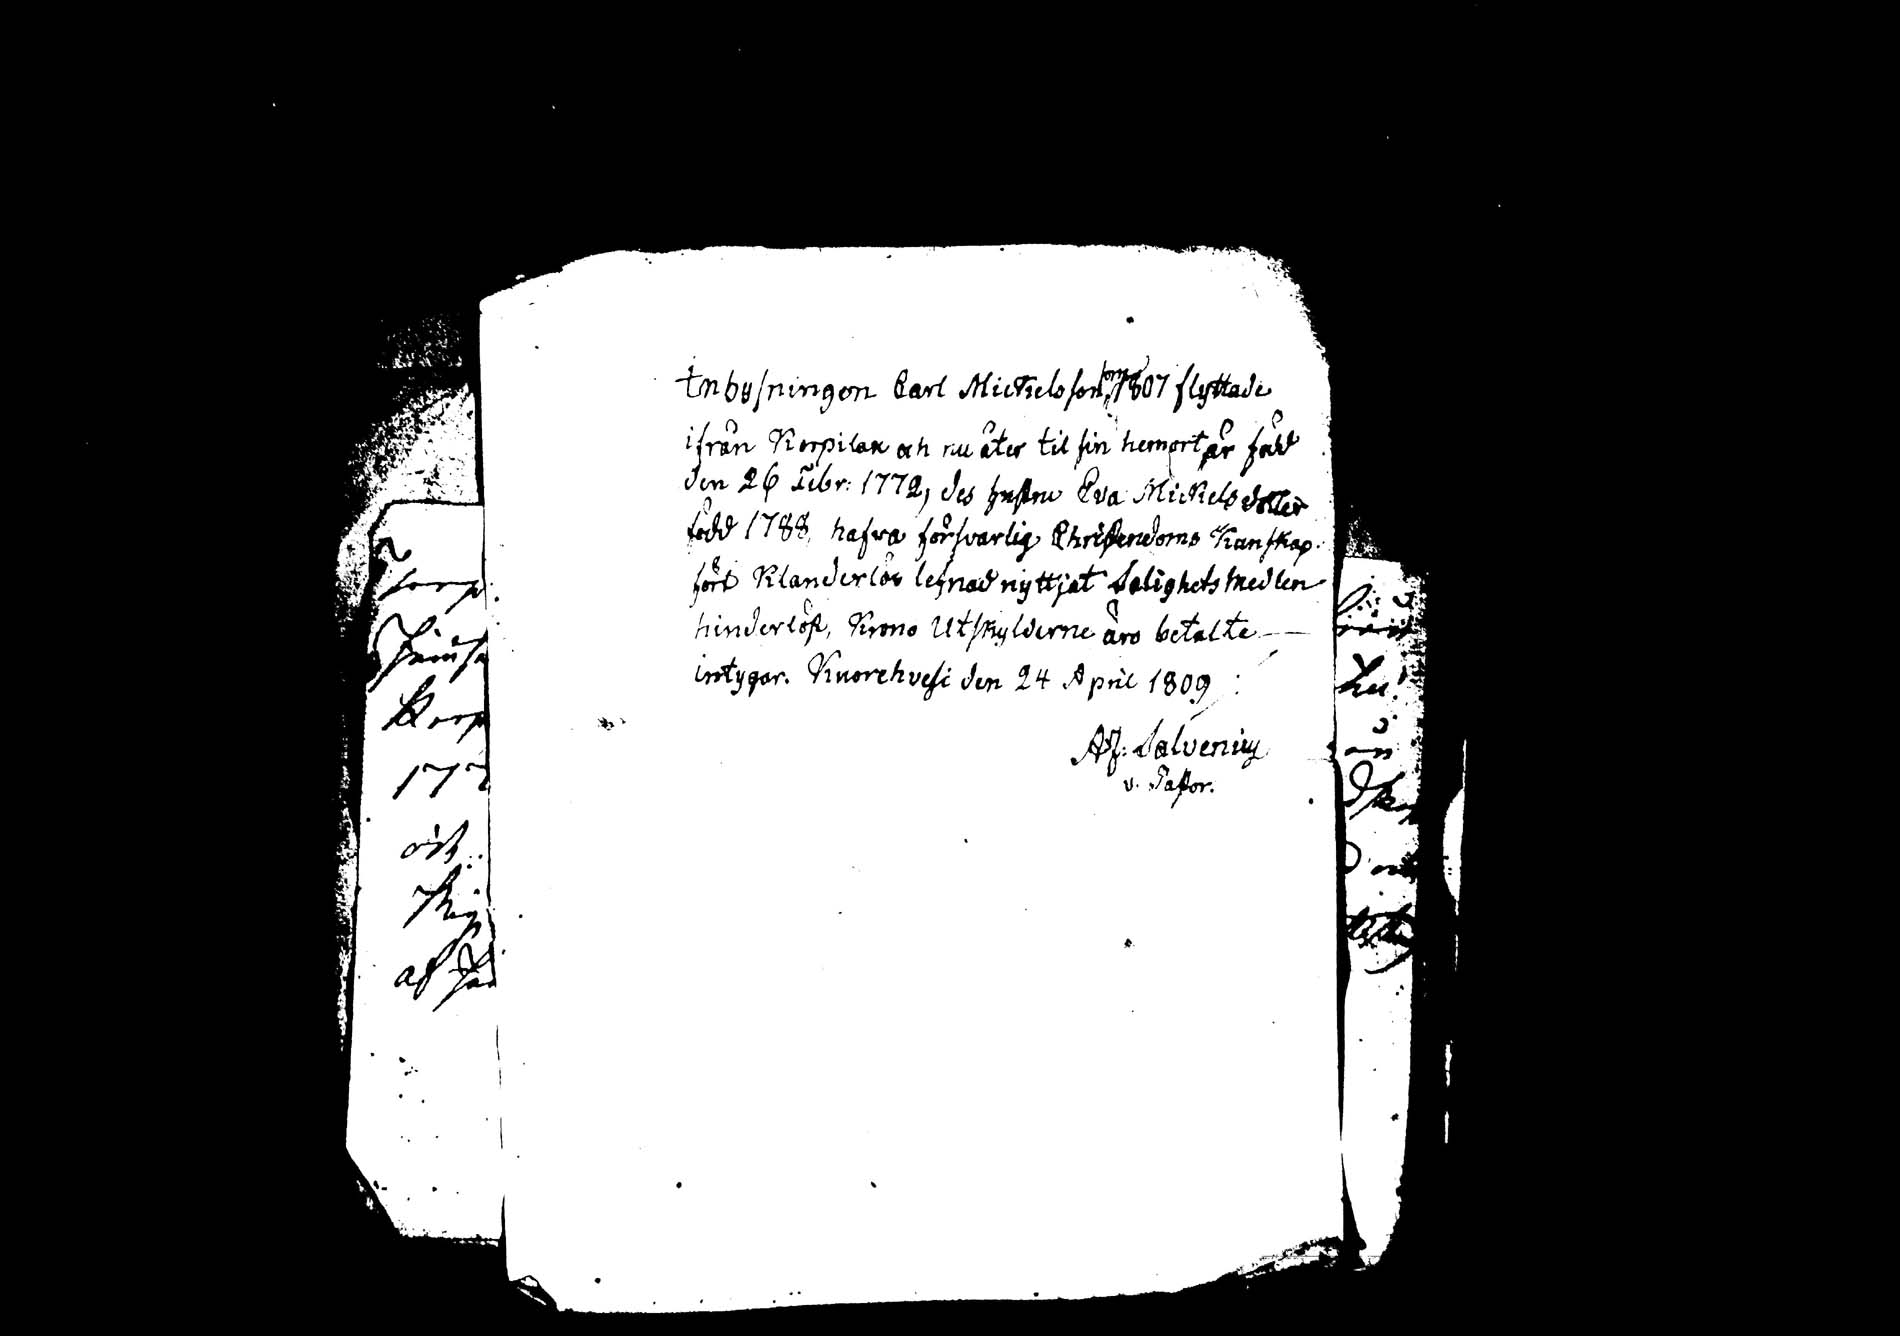 Inhysningen Carl Mickelsson som 1807 flyttade
ifrån Korpilax och nu åter til sin hemort är född
den 26 Febr: 1772, des hustru Eva Mickelsdotter
född 1788, hafva försvarlig Christendoms Kunskap
fört Klanderlös lefnad nyttjat Salighets medlen
hinderlöst, Krono Utskylderne äro betalte
intygar. Kuorehvesi den 24 April 1809
Salvenius
v. Pastor.
Korp
177
af